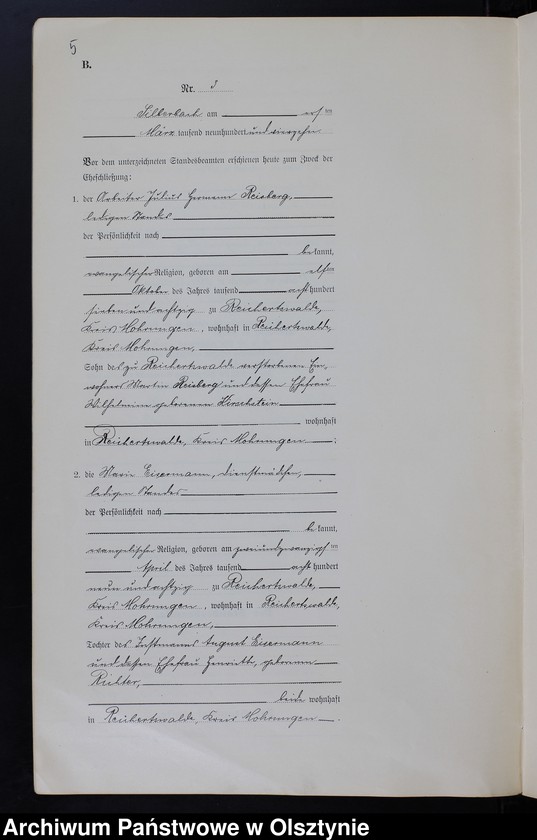 5
B.
Nr. 3
Silberbach am ersten
März tausend neunhundert und vierzehn.
Vor dem unterzeichneten Standesbeamten erschienen heute zum Zweck der
Eheschließung:
1. der Arbeiter Julius Hermann Reisberg,
ledigen Standes
der Persönlichkeit nach
bekannt,
evangelischer Religion, geboren am elften
Oktober des Jahres tausend achthundert
sieben und achtzig zu Reichertswalde,
Kreis Mohrungen, wohnhaft in Reichertswalde,
Kreis Mohrungen,
Sohn des zu Reichertswalde verstorbenen Ein-
wohners Martin Reisberg und dessen Ehefrau
Wilhelmine geborenen Kirschstein
wohnhaft
in Reichertswalde, Kreis Mohrungen.
2. die Marie Eisermann, Dienstmädchen,
ledigen Standes
der Persönlichkeit nach
bekannt,
evangelischer Religion, geboren am zweiundzwanzigsten
April des Jahres tausend achthundert
neun und achtzig zu Reichertswalde,
Kreis Mohrungen, wohnhaft in Reichertswalde,
Kreis Mohrungen,
Tochter des Instmanns August Eisermann
und dessen Ehefrau Henriette, geborenen
Richter,
beide wohnhaft
in Reichertswalde, Kreis Mohrungen.
Archiwum Państwowe w Olsztynie